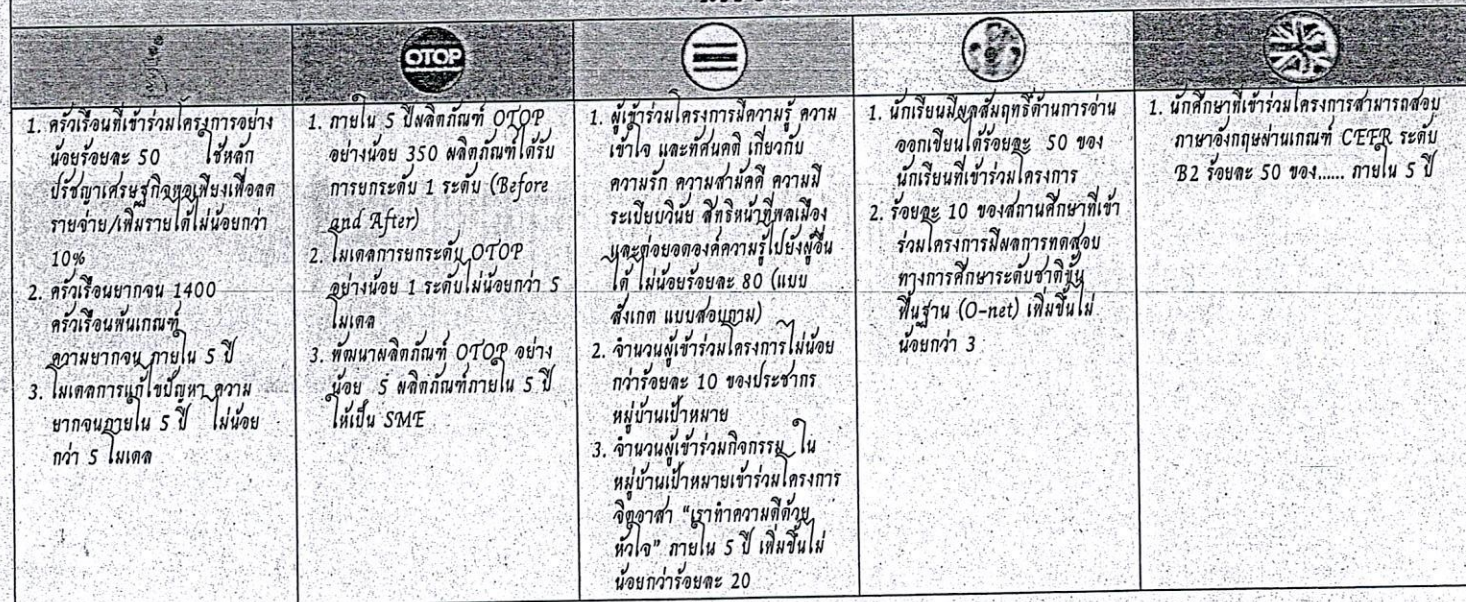 OTOP
1. ครัวเรือนที่เข้าร่วมโครงการอย่าง
น้อยร้อยละ 50 ใช้หลัก
ปรัชญาเศรษฐกิจพอเพียงเพื่อลด
รายจ่าย/เพิ่มรายได้ไม่น้อยกว่า
10%
2. ครัวเรือนยากจน 1400
ครัวเรือนพ้นเกณฑ์
ความยากจน ภายใน 5 ปี
3. โมเดลการแก้ไขปัญหา ความ
ยากจนภายใน 5 ปี ไม่น้อย
กว่า 5 โมเดล
1. ภายใน 5 ปีผลิตภัณฑ์ OTOP
อย่างน้อย 350 ผลิตภัณฑ์ได้รับ
การยกระดับ 1 ระดับ (Before
and After)
2. โมเดลการยกระดับ OTOP
อย่างน้อย 1 ระดับไม่น้อยกว่า 5
โมเดล
3. พัฒนาผลิตภัณฑ์ OTOP อย่าง
น้อย 5 ผลิตภัณฑ์ภายใน 5 ปี
ให้เป็น SME
1. ผู้เข้าร่วมโครงการมีความรู้ ความ
เข้าใจ และทัศนคติ เกี่ยวกับ
ความรัก ความสามัคคี ความมี
ระเบียบวินัย สิทธิหน้าที่พลเมือง
และต่อยอดองค์ความรู้ไปยังผู้อื่น
ได้ ไม่น้อยร้อยละ 80 (แบบ
สังเกต แบบสอบถาม)
2. จำนวนผู้เข้าร่วมโครงการไม่น้อย
กว่าร้อยละ 10 ของประชากร
หมู่บ้านเป้าหมาย
3. จำนวนผู้เข้าร่วมกิจกรรม ใน
หมู่บ้านเป้าหมายเข้าร่วมโครงการ
จิตอาสา "เราทำความดีด้วย
หัวใจ" ภายใน 5 ปี เพิ่มขึ้นไม่
น้อยกว่าร้อยละ 20
1. นักเรียนมีผลสัมฤทธิ์ด้านการอ่าน
ออกเขียนได้ร้อยละ 50 ของ
นักเรียนที่เข้าร่วมโครงการ
2. ร้อยละ 10 ของสถานศึกษาที่เข้า
ร่วมโครงการมีผลการทดสอบ
ทางการศึกษาระดับชาติขั้น
พื้นฐาน (O-net) เพิ่มขึ้นไม่
น้อยกว่า 3
1. นักศึกษาที่เข้าร่วมโครงการสามารถสอบ
ภาษาอังกฤษผ่านเกณฑ์ CEFR ระดับ
B2 ร้อยละ 50 ของ...... ภายใน 5 ปี